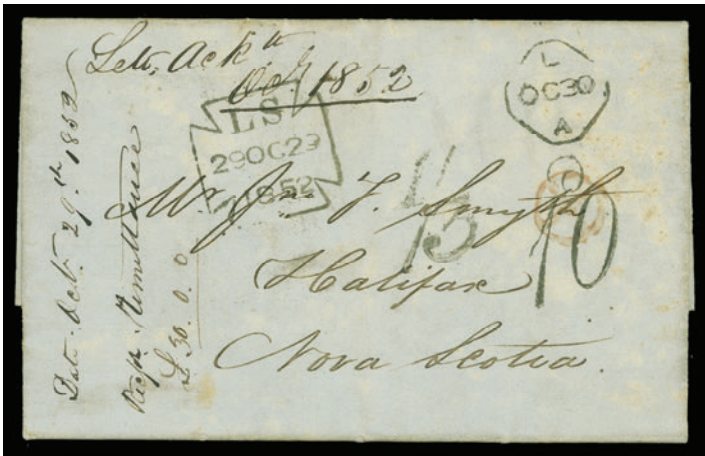 Lett, Ack th
Oct 1852
L
OC30
A
LS
29OC29
1852
Mr Jno. F. Smyth
Halifax
Nova Scotia.
1/3
10
Date Oct. 29th 1852
Recpt. Remittance
£30.0.0